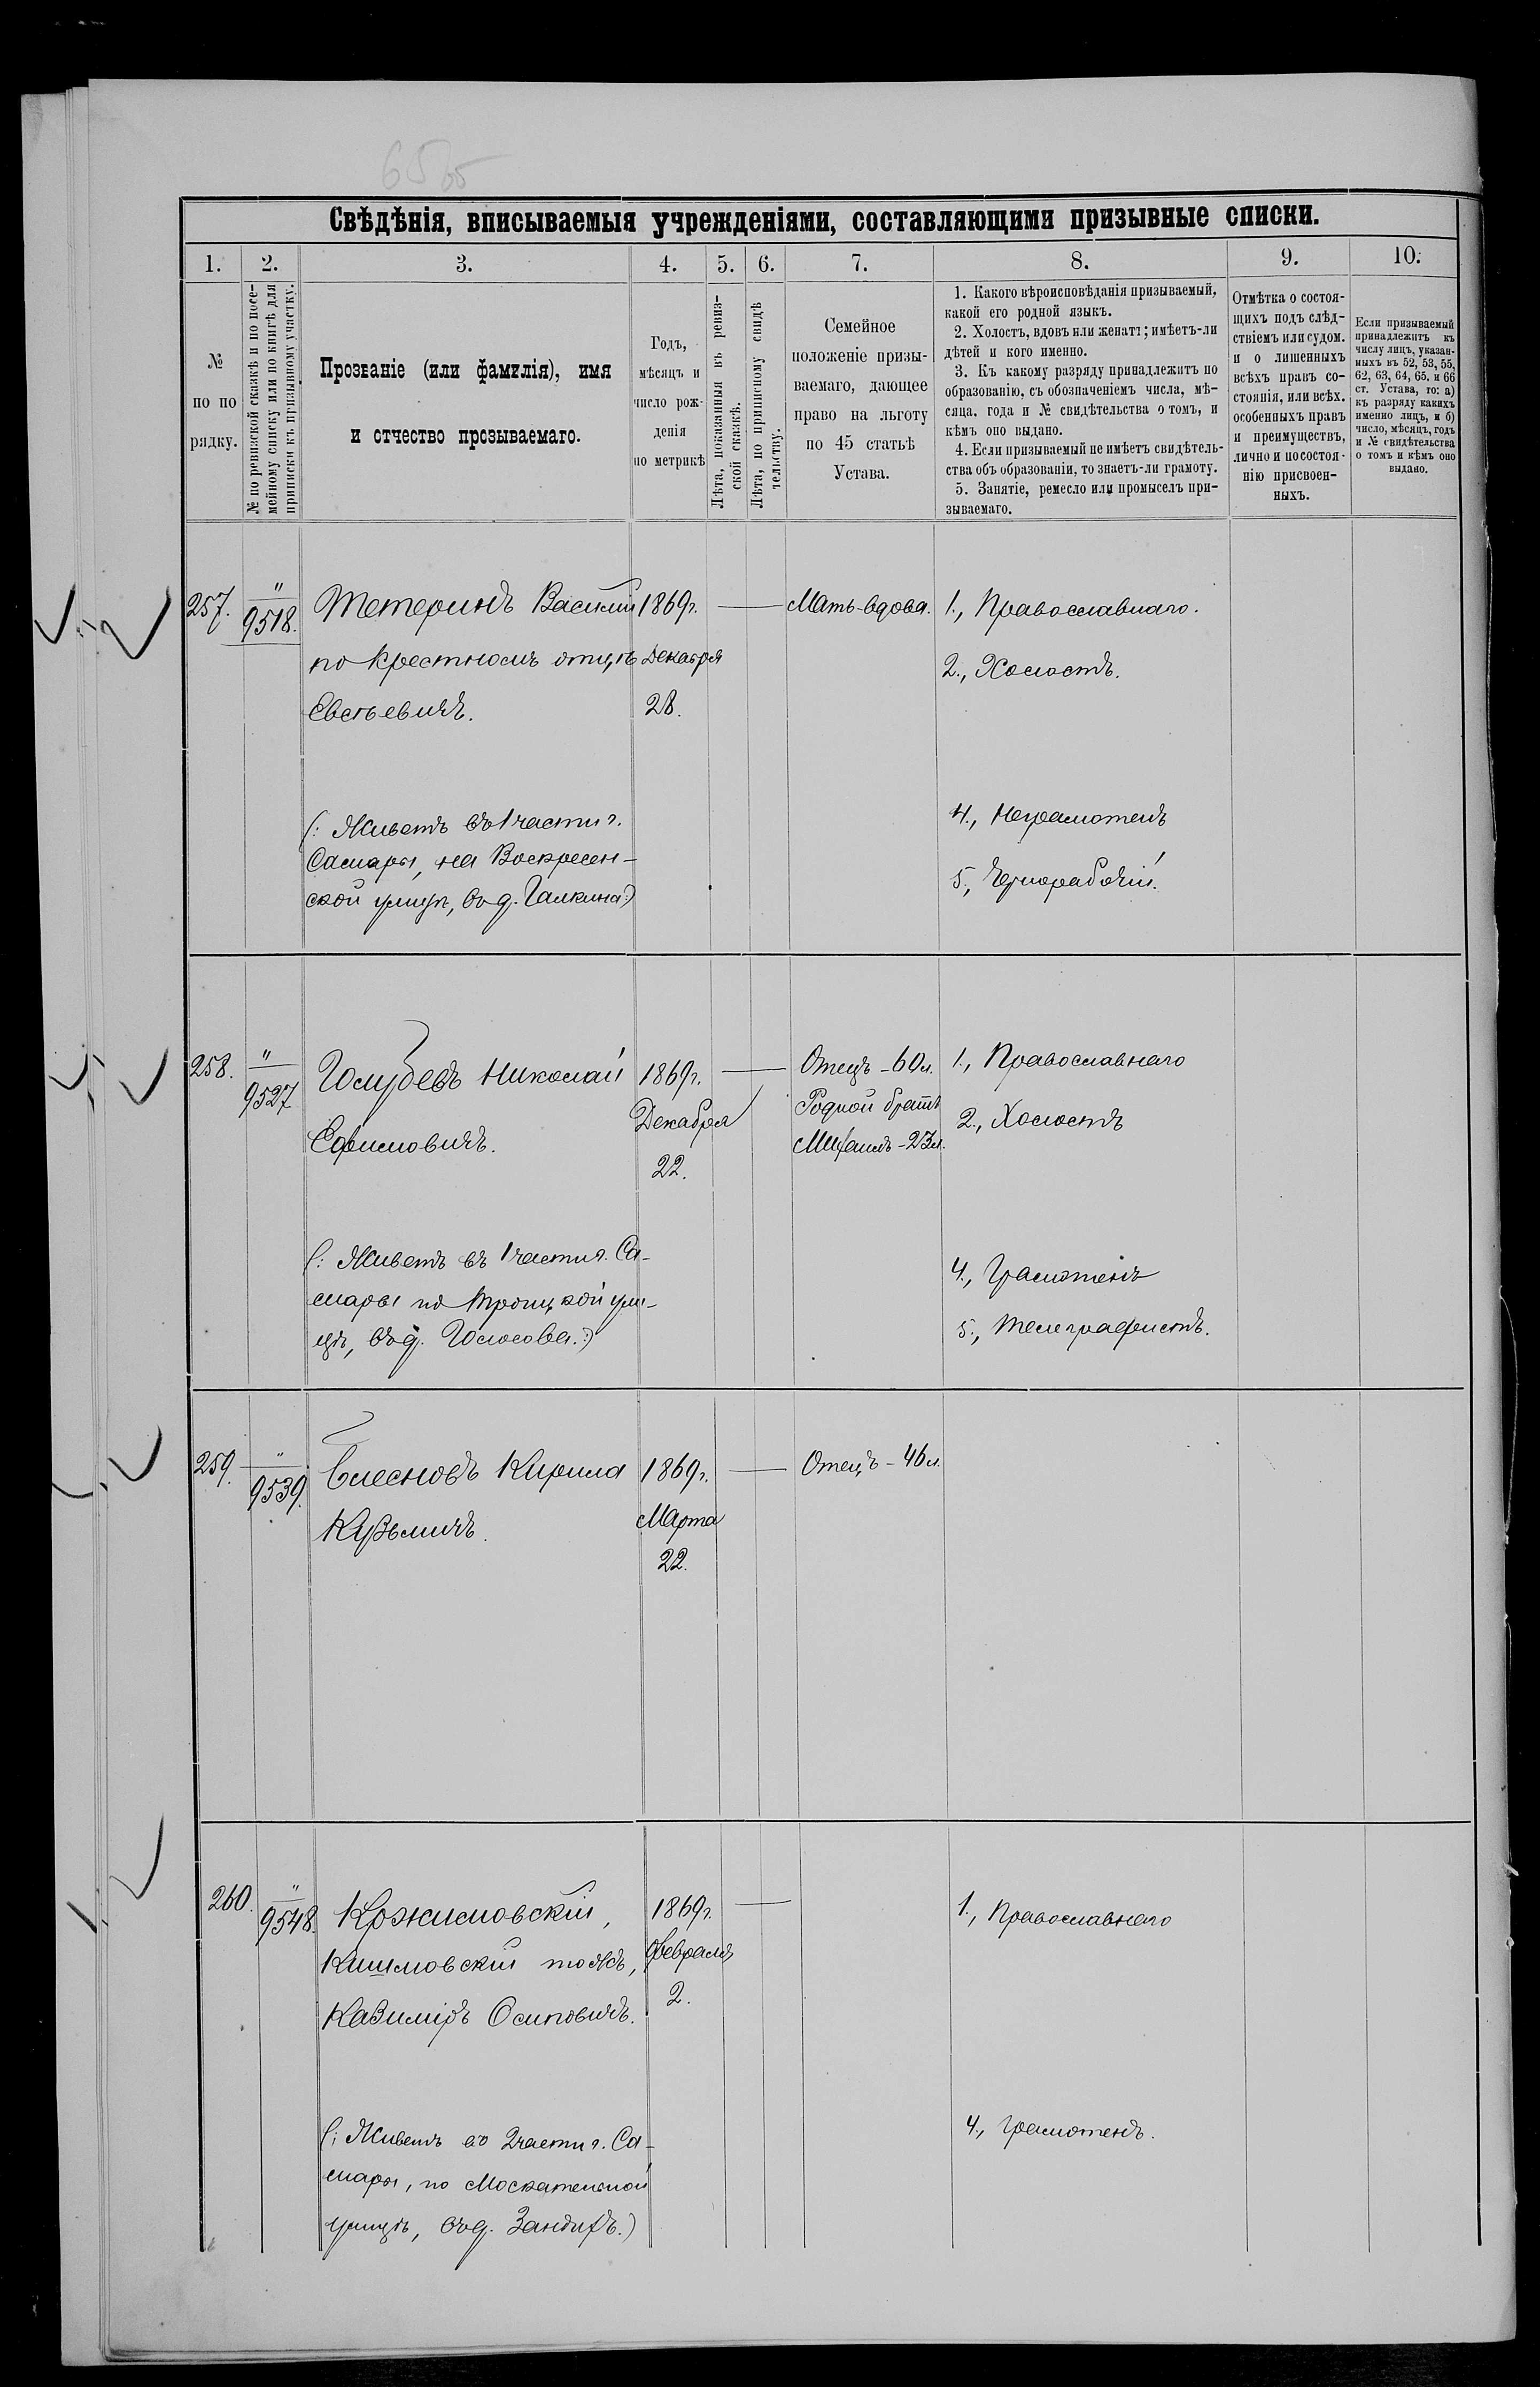 Свѣдѣнія, вписываемыя учрежденіями, составляющими призывные списки.
1. 2. 3. 4. 5. 6. 7. 8. 9. 10.
№
по по
рядку.
№ по ревизской сказкѣ и по посе-
мейному списку или по книгѣ для
приписки къ призывному участку.
Прозваніе (или фамилія), имя
и отчество прозываемаго.
Годъ,
мѣсяцъ и
число рож-
денія
по метрикѣ
Лѣта, показанныя въ ревиз-
ской сказкѣ.
Лѣта, по приписному свидѣ
тельству.
Семейное
положеніе призы-
ваемаго, дающее
право на льготу
по 45 статьѣ
Устава.
1. Какого вѣроисповѣданія призываемый,
какой его родной языкъ.
2. Холостъ, вдовъ или женатъ; имѣетъ-ли
дѣтей и кого именно.
3. Къ какому разряду принадлежитъ по
образованію, съ обозначеніемъ числа, мѣ-
сяца, года и № свидѣтельства о томъ, и
кѣмъ оно выдано.
4. Если призываемый не имѣетъ свидѣтель-
ства объ образованіи, то знаетъ-ли грамоту.
5. Занятіе, ремесло или промыселъ при-
зываемаго.
Отмѣтка о состоя-
щихъ подъ слѣд-
ствіемъ или судом.
и о лишенныхъ
всѣхъ правъ со-
стоянія, или всѣх.
особенныхъ правъ
и преимуществъ,
лично и по состоя-
нію присвоен-
ныхъ.
Если призываемый
принадлежитъ къ
числу лицъ, указан-
ныхъ въ 52, 53, 55,
62, 63, 64, 65, и 66
ст. Устава, то: а)
къ разряду какихъ
именно лицъ, и б)
число, мѣсяцъ, годъ
и № свидѣтельства
о томъ и кѣмъ оно
выдано.
257. " 9518. Тетеринъ Василій 1869г. Мать-вдова. 1., Православнаго.
по крестномъ отцѣ Декабря 2., Холостъ.
Евстьевичъ. 28.
(: Живетъ въ 1 части г. 4., Неграмотенъ
Самары, на Воскресен-
ской улицѣ, въ д. Галкина:) 5., Чернорабочій.
258. " 9527 Голубевъ Николай 1869г. Отецъ - 60л. 1., Православнаго
Ефимовичъ. Декабря Родной братъ 2., Холостъ
22. Михаилъ - 23л.
(: Живетъ въ 1 части г. Са- 4., Грамотенъ
мары по Троицкой ули-
цѣ, въ д. Голосова.:) 5., Телеграфистъ.
259. " 9539. Блесновъ Кирила 1869г. Отецъ - 46л.
Кузьмичъ. Марта
22.
260. " 9548. Кожимовскій, 1869г. 1., Православнаго
Кишмовскій тожъ, Февраля
Казиміръ Осиповичъ. 2.
(: Живетъ во 2 части г. Са- 4., Грамотенъ.
мары, по Москательной
улицѣ, въ д.